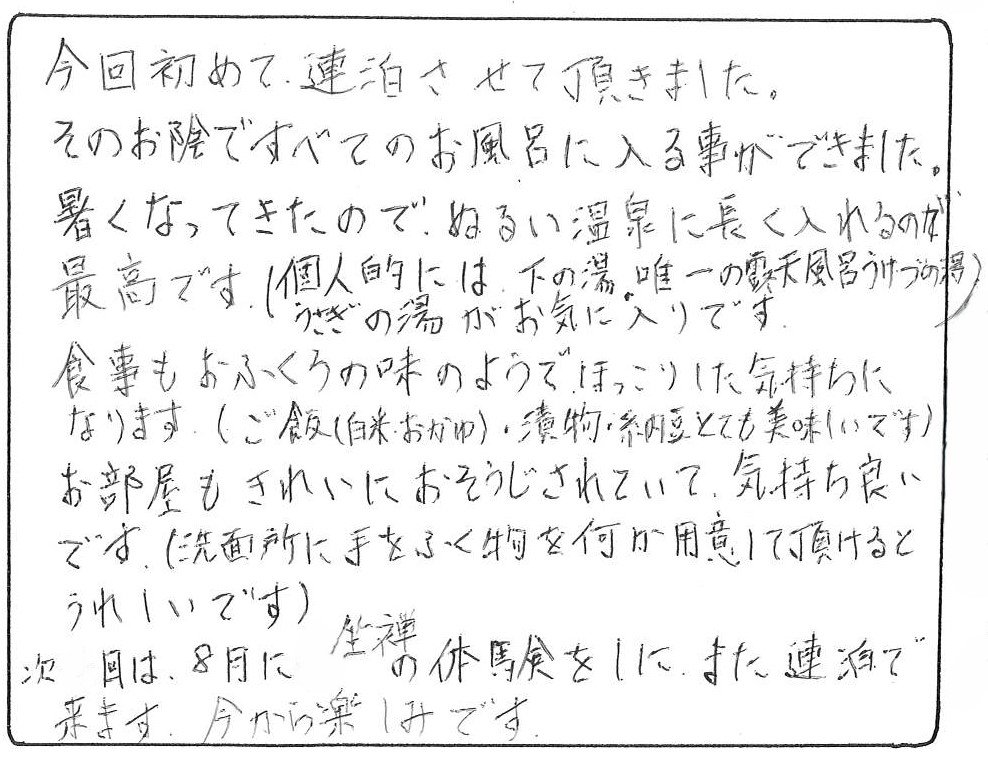 今回初めて、連泊させて頂きました。
そのお陰ですべてのお風呂に入る事ができました。
暑くなってきたので、ぬるい温泉に長く入れるのが
最高です。(個人的には、下の湯、唯一の露天風呂うけづの湯)
うさぎの湯がお気に入りです。
食事もおふくろの味のようで、ほっこりした気持ちに
なります。(ご飯(白米・おかゆ)・漬物・納豆とても美味しいです)
お部屋もきれいにおそうじされていて、気持ち良い
です。(洗面所に手をふく物を何か用意して頂けると
うれしいです)
次回は、8月に坐禅の体験をしに、また連泊で
来ます。今から楽しみです。